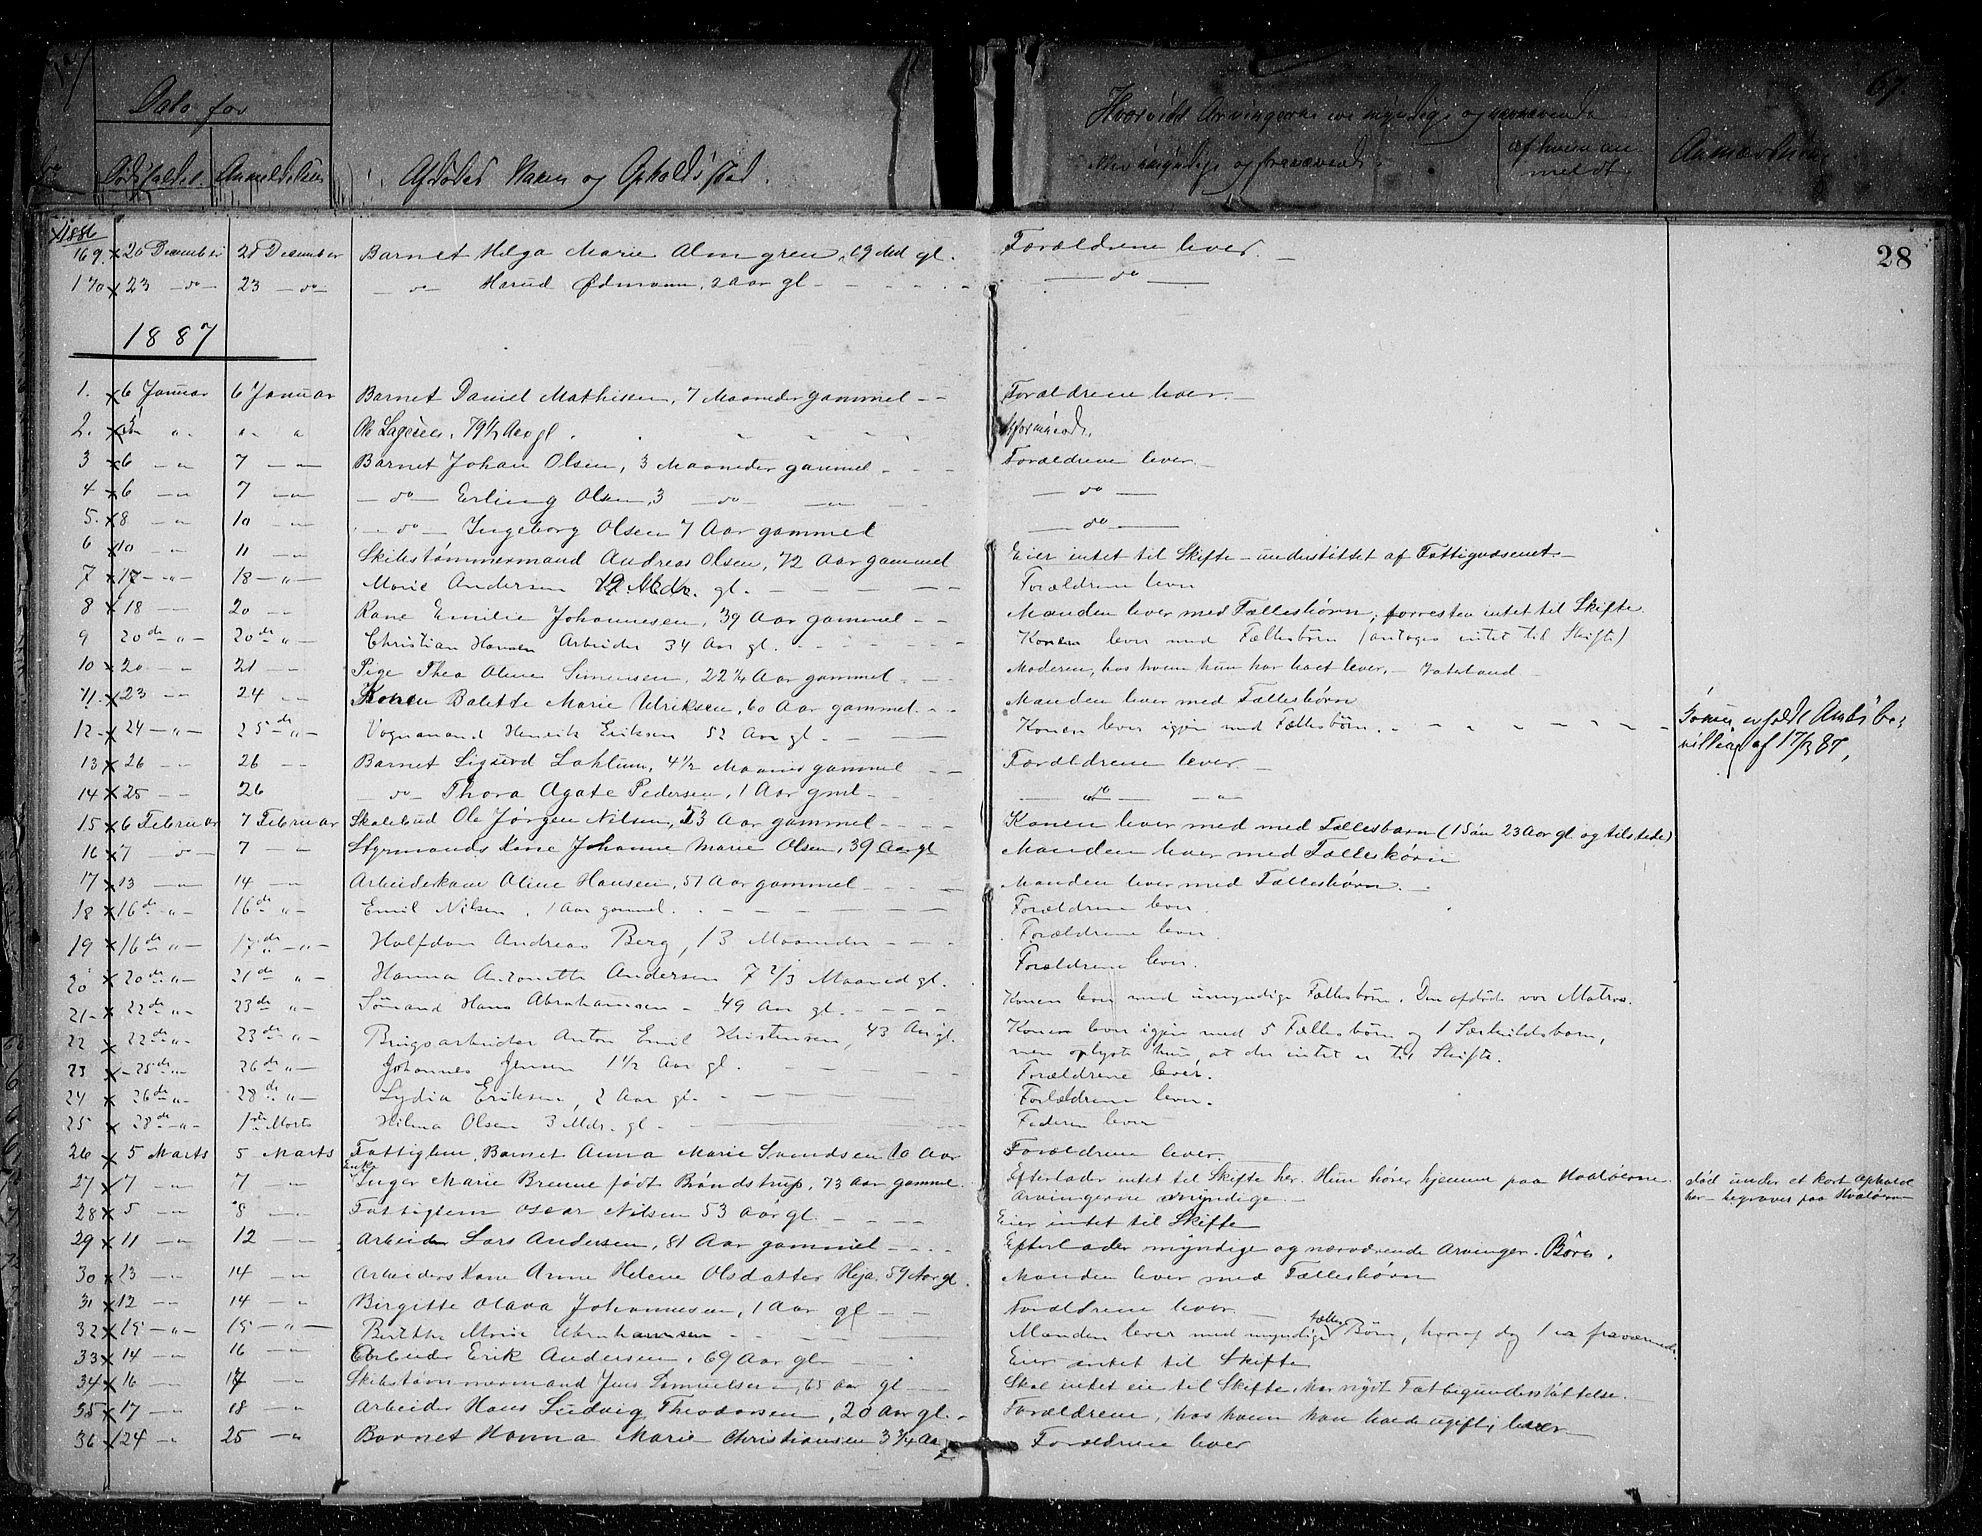 67.
Dato for
Hvorvidt Arvingerne ere myndige og nærværende
Dødsfaldet. Anmeldelsen
Afdødes Navn og Opholdssted.
af hvem anmeldt.
Anmærkning
28
1886
169. x 20 December 28 December Barnet Helga Marie Almgren, 19 Md gl. Forældrene lever.
170 x 23 — do — 23 — do — do — Ødmann, 2 Aar gl — do —
1887
1. x 6 Januar 6 Januar Barnet Daniel Mathisen, 7 Maaneder gammel Forældrene lever.
2. x 3 " " " 79½ Aar gl.
3 x 6 — " 7 — " Barnet Johan Olsen, 3 Maaneder gammel Forældrene lever.
4 x 6 — " 7 — " — do — Erling Olsen, 3 — do — " — do —
5. x 8 — " 10 — " — do — Ingeborg Olsen 7 Aar gammel — do —
6 x 10 — " 11 — " Skibstømmermand Andreas Olsen, 72 Aar gammel Eier intet til Skifte — understøttet af Fattigvæsenet —
7 x 17 — " — 18 — " — Marie Andersen Mdr. gl. Forældrene lever
8 x 18 — " 20 — " Kone Emilie Johannesen, 39 Aar gammel Manden lever med Fællesbørn, forresten intet til Skifte
9 20de " — 20de " — Christian Hansen Arbeider 34 Aar gl. Konen lever med Fællesbørn (antages intet til Skifte)
10 x 20 — " 21 — " Pige Thea Oline Simensen, 22¼ Aar gammel Moderen, hos hvem hun har boet lever.
11. x 23 — " 24 — " Konen Balette Marie Ulriksen, 60 Aar gammel. Manden lever med Fællesbørn
12. x 24 — " — 25de " — Vognmand Henrik Eriksen 52 Aar gl. Konen lever igjen med Fællesbørn.
af 17/3 87,
13 x 26 — " 26 — " Barnet Sigurd Lahlum, 4½ Maaned gammel Forældrene lever.
14 x 25 — " 26 — do — Thora Agate Pedersen, 1 Aar gml. — do — "
15 x 6 Februar 7 Februar Ole Jørgen Nilsen, 53 Aar gammel Konen lever med med Fællesbarn (1 Søn 23 Aar gl og tilstede)
16 x 7 — " — 7 — " Styrmands Kone Johanne Marie Olsen, 39 Aar gl Manden lever med Fællesbørn
17 x 13 — " 14 — " Arbeiderkone Oline Hansen, 51 Aar gammel Manden lever med Fællesbørn.
18 x 16de — " — 16de " — Emil Nilsen, 1 Aar gammel. Forældrene lever.
19 x 16de " — 17de — " — Halfdan Andreas Berg, 13 Maaneder Forældrene lever.
20 x 20de " — 21de " — Hanna Antonette Andersen 7 2/3 Maaned gl. Forældrene lever.
21. x 22de " — 23de " — Sømand Hans Abrahamsen — 49 Aar gl. Konen lever med umyndige Fællesbørn. Den afdøde var Matros.
22 x 22de " — 23de " — Brugsarbeider Anton Emil Kristensen, 43 Aar gl. Konen lever igjen med 5 Fællesbørn og 1 Særkuldsbarn,
men oplyste hun, at der intet er til Skifte.
23 x 25de " — 26de " — Johannes Jensen 1½ Aar gl. Forældrene lever.
24 x 26de " — 28de " — Lydia Eriksen, 2 Aar gl. Forældrene lever.
25 x 28de — " — 1ste Marts Hilma Olsen 3 Mdr. gl. Faderen lever
26 x 5 Marts 5 Marts Fattiglem, Barnet Anna Marie Svendsen 10 Aar Forældrene lever.
27 x 7 — " 7 — " Enke Inger Marie Brenne født Brøndstrup, 73 Aar gammel. Efterlader intet til Skifte her. Hun hører hjemme paa Hvaløerne. død under et kort Ophold
Arvingerne myndige. her — begraves paa Hvaløerne
28 x 5 — " 8 — " Fattiglem Oscar Nilsen 53 Aar gl. Eier intet til Skifte
29 x 11 — " 12 — " Arbeider Lars Andersen, 81 Aar gammel Efterlader myndige og nærværende Arvinger. Børn.
30 x 13 — " 14 — " Arbeiders Kone Anne Helene Olsdatter Heja. 59 Aar gl. Manden lever med Fællesbørn
31 x 12 — " 14 — " Birgitte Olava Johannesen, 1 Aar gl Forældrene lever
32 x 15 — " — 15 — " — Berthe Marie Abrahamsen Manden lever med myndige Fælles Børn, hvoraf dog 1 er fraværende.
33 x 14 — " 16 — " Arbeider Erik Andersen, 69 Aar gl. Eier intet til Skifte
34 x 16 — " 17 — " Skibstømmermand Jens Samuelsen, 65 Aar gl Skal intet eie til Skifte. Har nydt Fattigunderstøttelse.
35 x 17 — " 18 — " Arbeider Hans Ludvig Theodorsen, 20 Aar gl. Forældrene, hos hvem han boede ugift, lever
36 x 24 — " 25 — " Barnet Hanna Marie Christiansen 3¾ Aar Forældrene lever